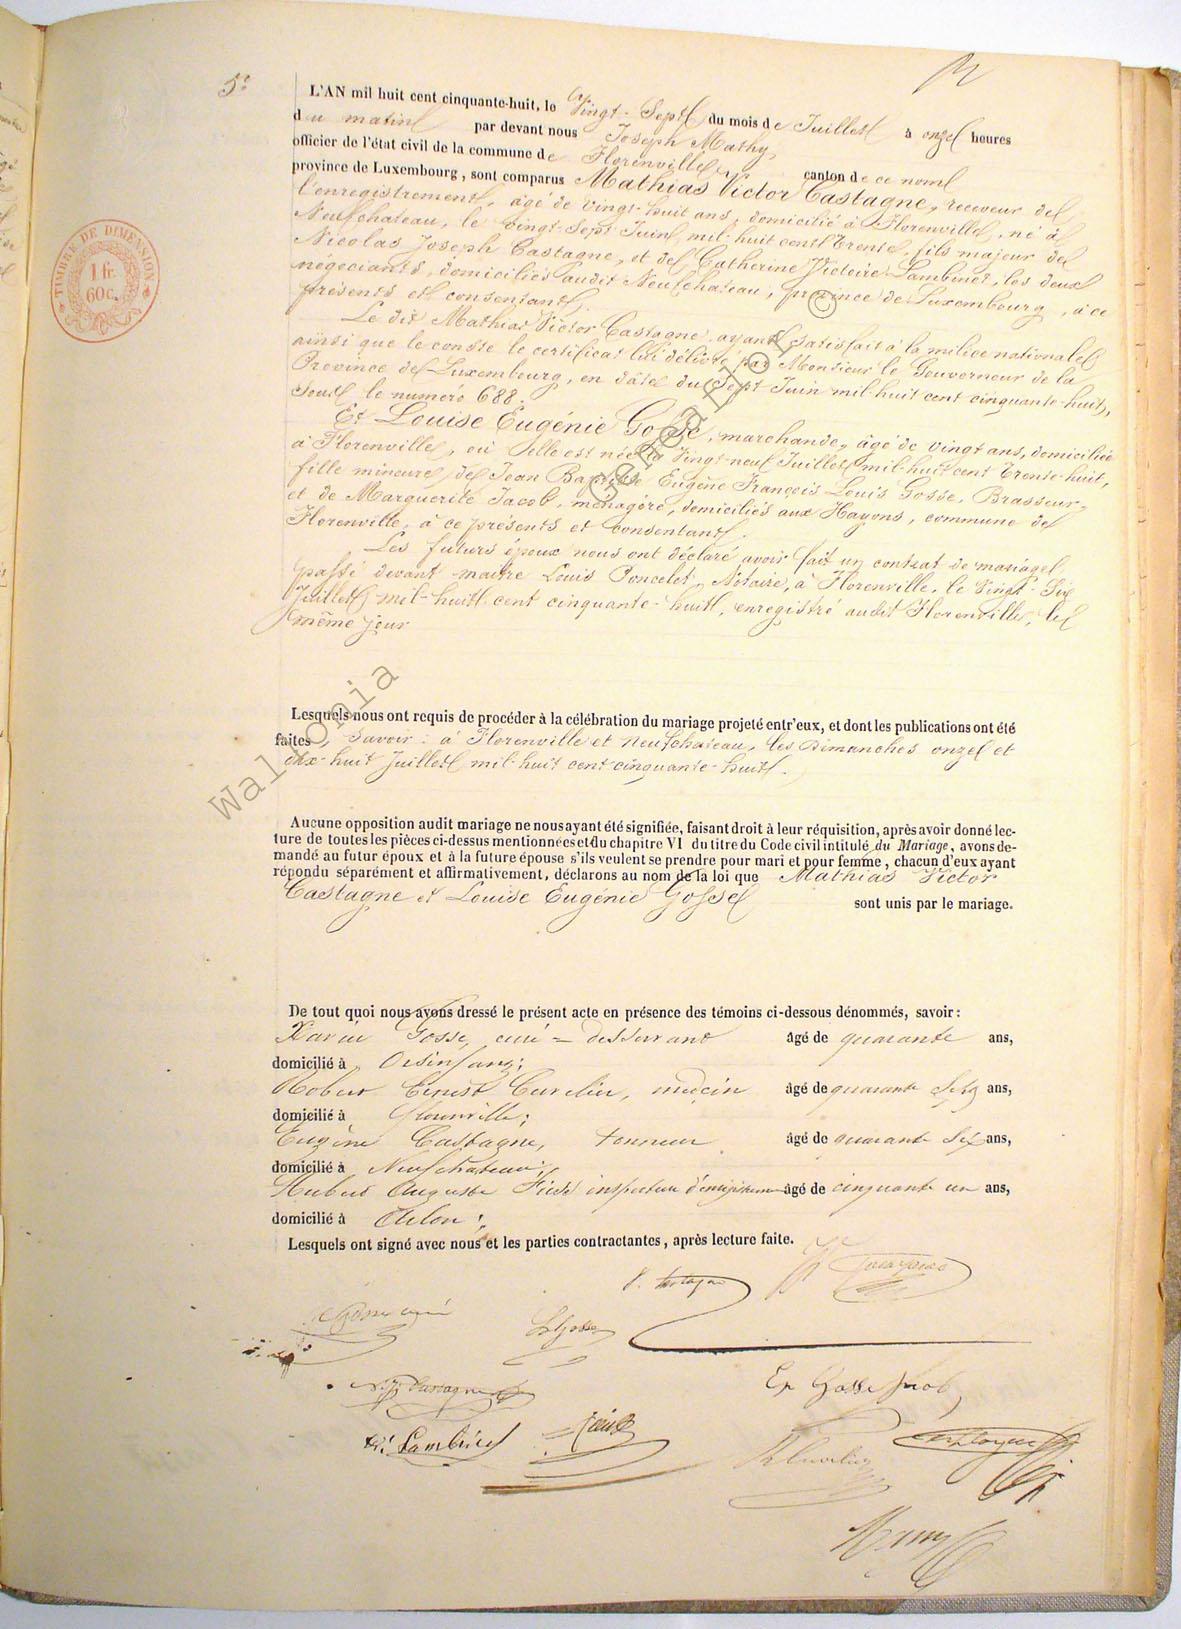 5e
L'AN mil huit cent cinquante-huit, le Vingt-Sept du mois de Juillet à onze heures
du matin par devant nous Joseph Mathy,
officier de l'état civil de la commune de Florenville canton de ce nom
province de Luxembourg, sont comparus Mathias Victor Castagne, receveur de
l'enregistrement, âgé de vingt-huit ans, domicilié à Florenville, né à
Neufchateau, le vingt-sept Juin mil-huit cent Trente, fils majeur de
Nicolas Joseph Castagne, et de Catherine Victoire Lambinet, les deux
négociants, domiciliés audit Neufchateau, province de Luxembourg, à ce
présents et consentant.
Le dit Mathias Victor Castagne ayant satisfait à la milice nationale
ainsi que le conste le certificat lui délivré par Monsieur le Gouverneur de la
Province de Luxembourg, en date du sept Juin mil-huit cent cinquante-huit,
sous le numéro 688.
Et Louise Eugénie Gosse, marchande, âgée de vingt ans, domiciliée
à Florenville, où elle est née le Vingt-neuf Juillet mil-huit cent Trente-huit,
fille mineure de Jean Baptiste Eugène François Louis Gosse, Brasseur,
et de Marguerite Jacob, ménagère, domiciliés aux Hayons, commune de
Florenville, à ce présents et consentant.
Les futurs époux nous ont déclaré avoir fait un contrat de mariage
passé devant maître Louis Poncelet, Notaire, à Florenville, le Vingt-Six
Juillet mil-huit cent cinquante-huit, enregistré audit Florenville, le
même jour
Lesquels nous ont requis de procéder à la célébration du mariage projeté entr'eux, et dont les publications ont été
faites, Savoir: à Florenville et Neufchateau, les Dimanches onze et
dix-huit Juillet mil-huit cent-cinquante-huit.
Aucune opposition audit mariage ne nous ayant été signifiée, faisant droit à leur réquisition, après avoir donné lec-
ture de toutes les pièces ci-dessus mentionnées et du chapitre VI du titre du Code civil intitulé du Mariage, avons de-
mandé au futur époux et à la future épouse s'ils veulent se prendre pour mari et pour femme, chacun d'eux ayant
répondu séparément et affirmativement, déclarons au nom de la loi que Mathias Victor
Castagne et Louise Eugénie Gosse sont unis par le mariage.
De tout quoi nous avons dressé le présent acte en présence des témoins ci-dessous dénommés, savoir:
Xavier Gosse, curé-desservant âgé de quarante ans,
domicilié à Orsinfaing;
Robert Ernest Cuvelier, médecin âgé de quarante sept ans,
domicilié à Florenville;
Eugène Castagne, tanneur âgé de quarante six ans,
domicilié à Neufchateau;
Hubert Auguste inspecteur d'enregistrement âgé de cinquante un ans,
domicilié à Arlon;
Lesquels ont signé avec nous et les parties contractantes, après lecture faite.
V. Castagne
Gosse curé
L. Gosse
N. J. Castagne
Ep Gosse Jacob
Lambinet
R Cuvelier
TIMBRE DE DIMENSION
1 fr.
60 c.
Wallonia
Geneanet ©